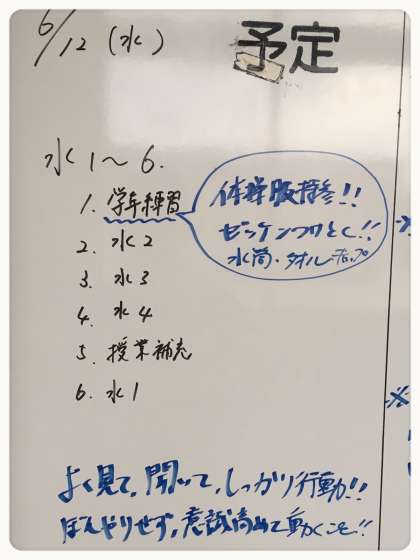 6/12 (水)
予定
水1〜6.
1. 学年練習
体操服持参!!
ゼッケンつけとく!!
水筒・タオル・
2. 水2
3. 水3
4. 水4
5. 授業補充
6. 水1
よく見て、聞いて、しっかり行動!!
ぼんやりせず、意識高めて動くこと!!